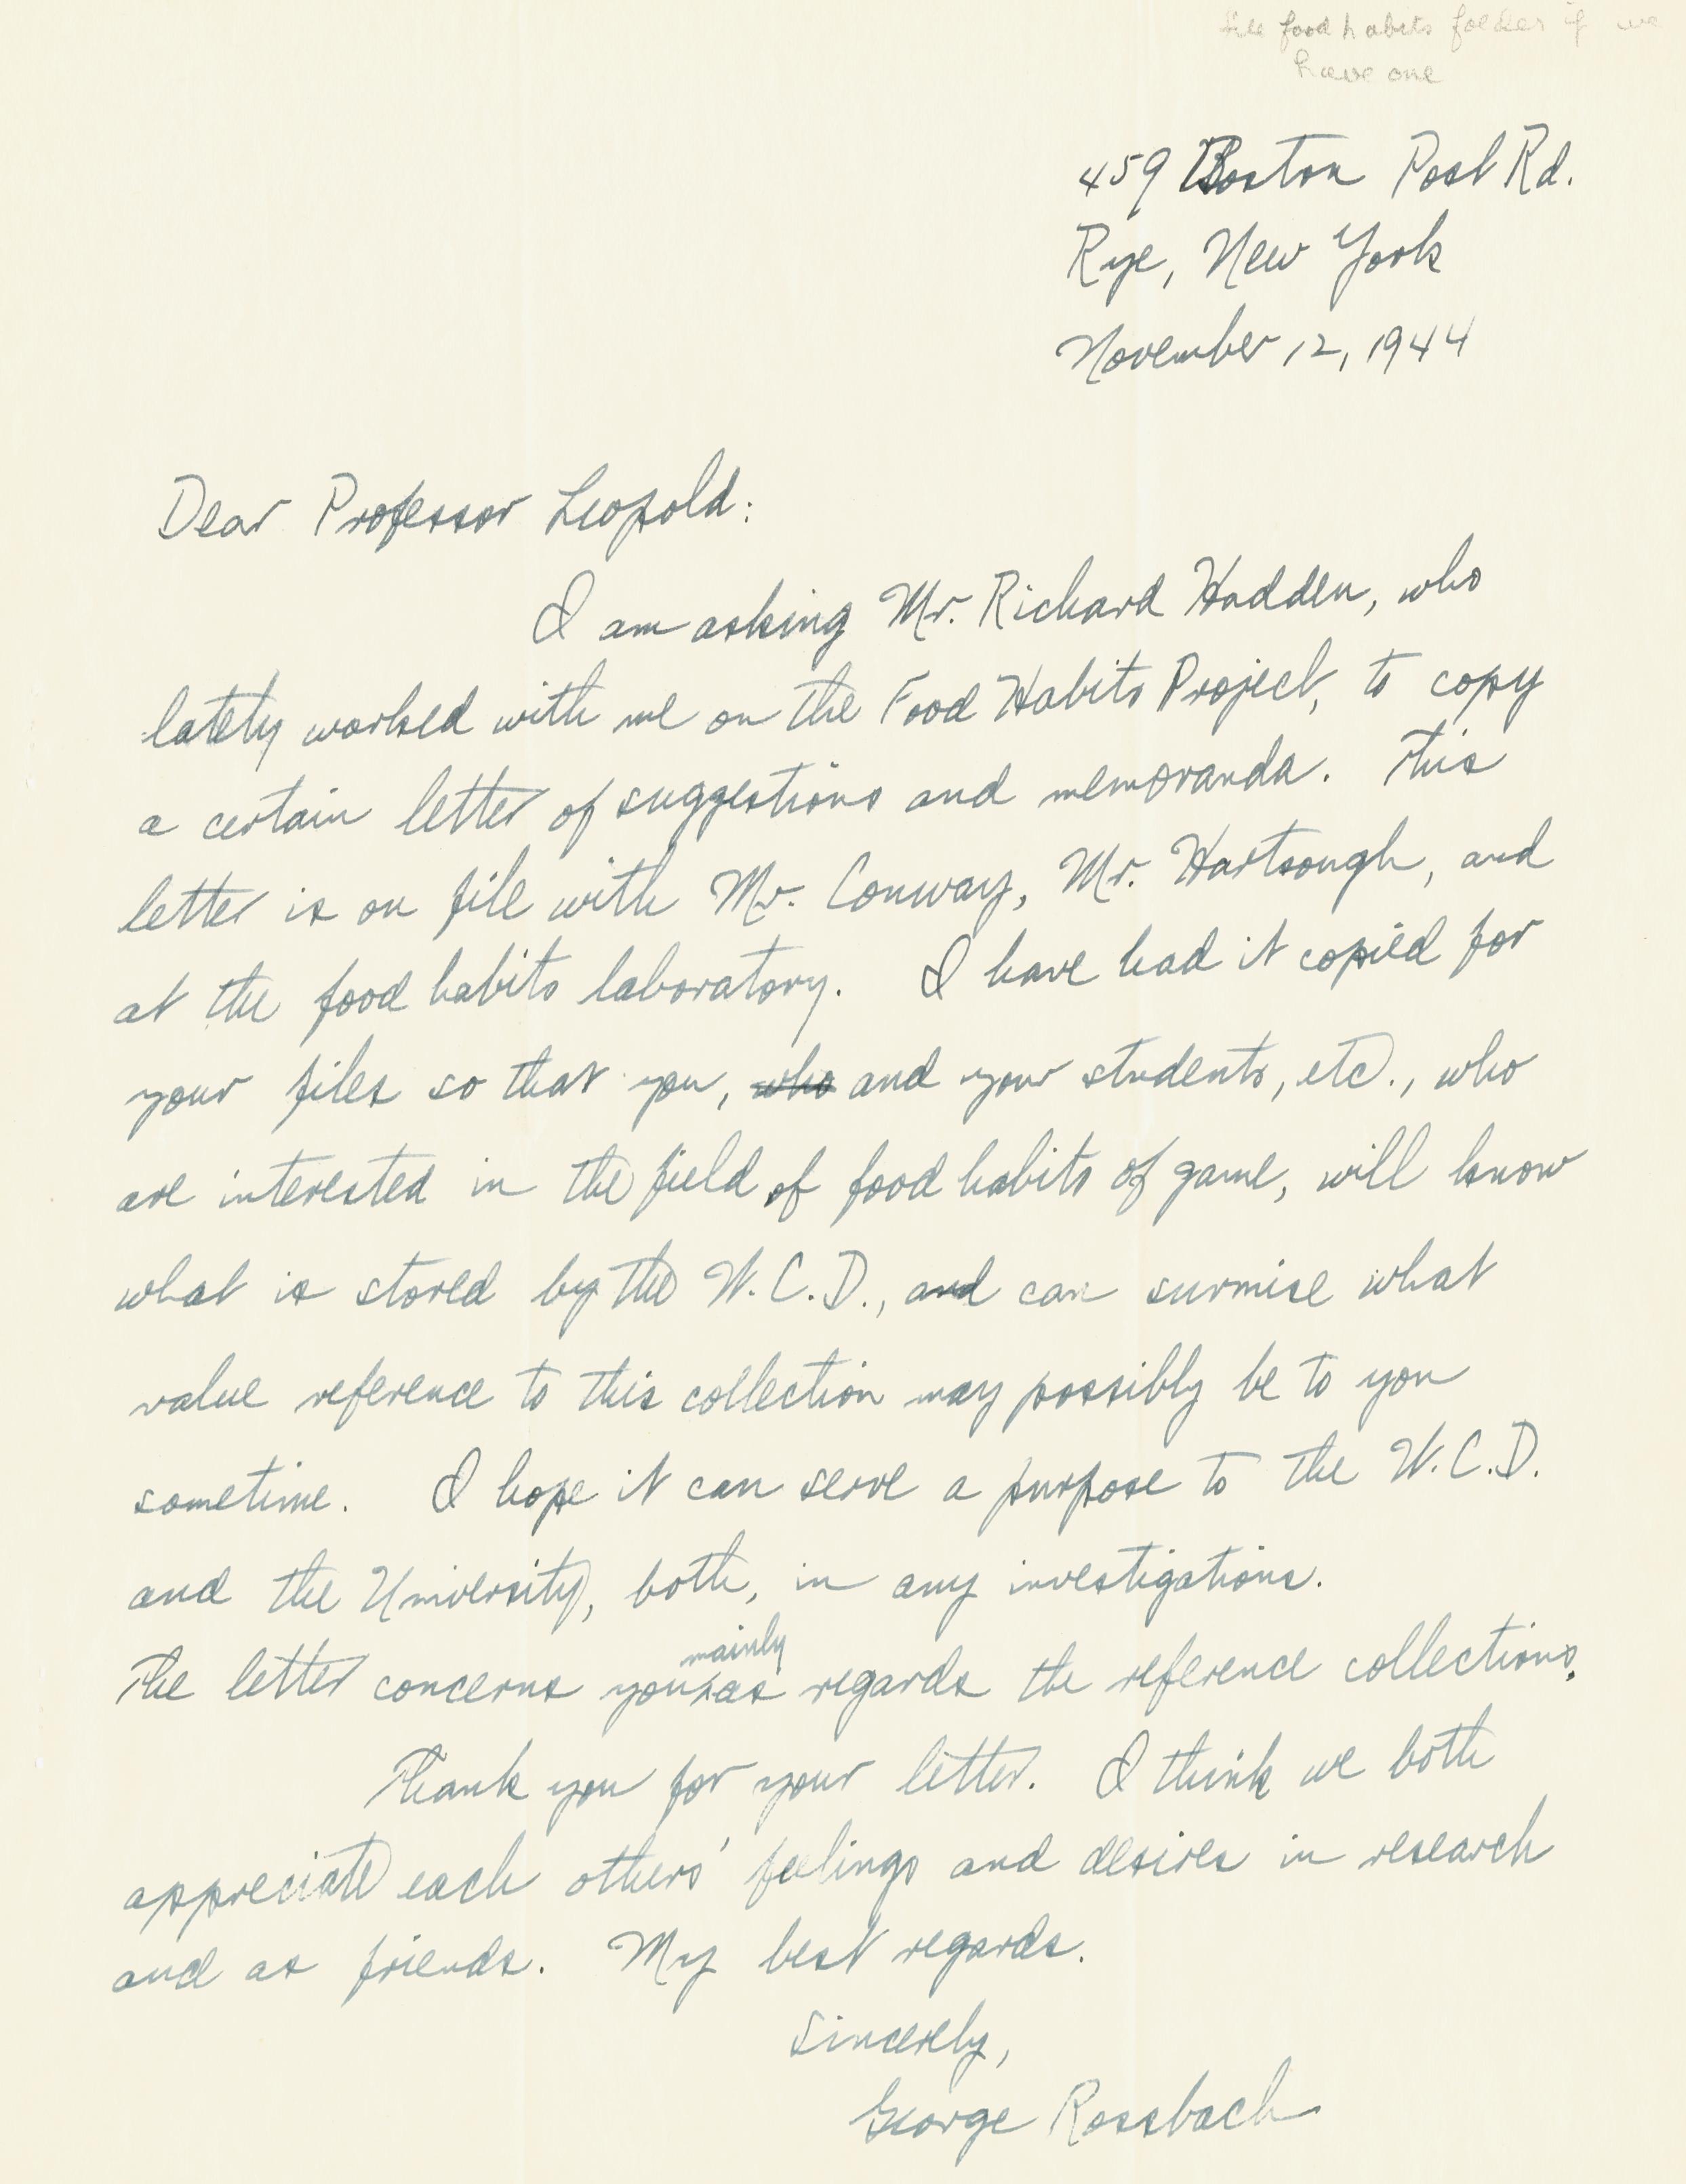 file food habits folder if we
have one
459 Boston Post Rd.
Rye, New York
November 12, 1944
Dear Professor Leopold:
I am asking Mr. Richard Hadden, who
lately worked with me on the Food Habits Project, to copy
a certain letter of suggestions and memoranda. This
letter is on file with Mr. Conway, Mr. Hartsough, and
at the food habits laboratory. I have had it copied for
your files so that you, who and your students, etc., who
are interested in the field of food habits of game, will know
what is stored by the W.C.D., and can surmise what
value reference to this collection may possibly be to you
sometime. I hope it can serve a purpose to the W.C.D.
and the University, both, in any investigations.
mainly
The letter concerns you as regards the reference collections.
Thank you for your letter. I think we both
appreciate each others' feelings and desires in research
and as friends. My best regards.
Sincerely,
George Rossbach